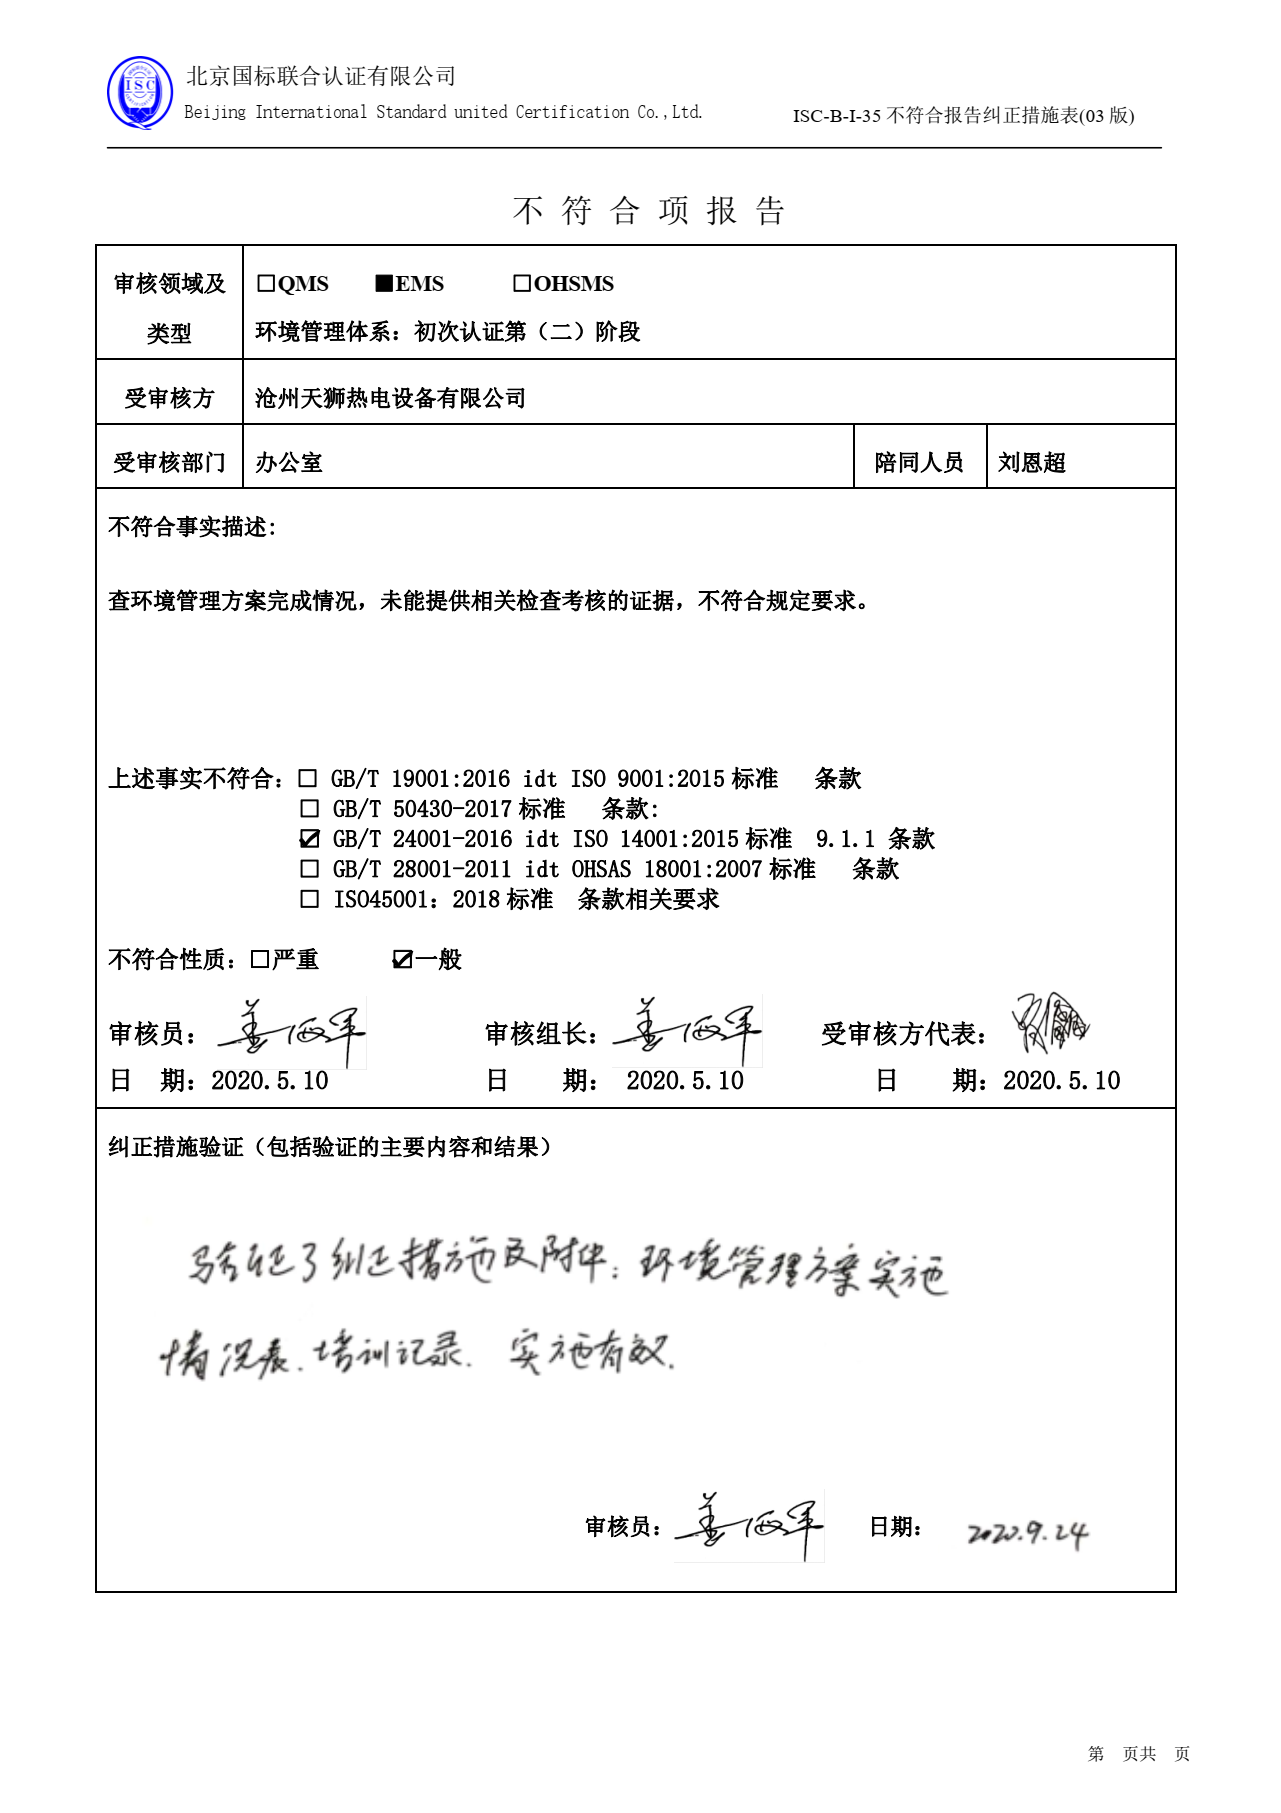 ISC
北京国标联合认证有限公司
Beijing International Standard united Certification Co.,Ltd.
ISC-B-I-35 不符合报告纠正措施表(03 版)
不 符 合 项 报 告
审核领域及类型
□QMS ■EMS □OHSMS
环境管理体系：初次认证第（二）阶段
受审核方
沧州天狮热电设备有限公司
受审核部门 办公室 陪同人员 刘恩超
不符合事实描述：
查环境管理方案完成情况，未能提供相关检查考核的证据，不符合规定要求。
上述事实不符合：□ GB/T 19001:2016 idt ISO 9001:2015 标准 条款
□ GB/T 50430-2017 标准 条款：
☑ GB/T 24001-2016 idt ISO 14001:2015 标准 9.1.1 条款
□ GB/T 28001-2011 idt OHSAS 18001:2007 标准 条款
□ ISO45001：2018 标准 条款相关要求
不符合性质：□严重 ☑一般
审核员： 审核组长： 受审核方代表：
日 期：2020.5.10 日 期： 2020.5.10 日 期：2020.5.10
纠正措施验证（包括验证的主要内容和结果）
验证了纠正措施及附件：环境管理方案实施
情况表、培训记录. 实施有效.
审核员： 日期： 2020.9.24
第 页共 页